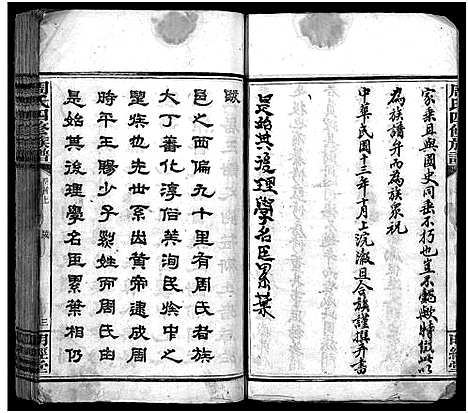 周氏四修族譜
家乘且與國史同垂不朽也豈不懿歟特倣此以
為族譜弁而為族衆祝
中華民國十三年十月上浣穀旦合族謹撰并書
是始其後理學名臣累葉
跋
邑之西偏九十里有周氏者族
大丁蕃化淳俗美洵民族中之
望族也先世系出黃帝逮成周
時平王賜少子烈姓而周氏由
是始其後理學名臣累葉相仍
周氏四修族譜
跋
三